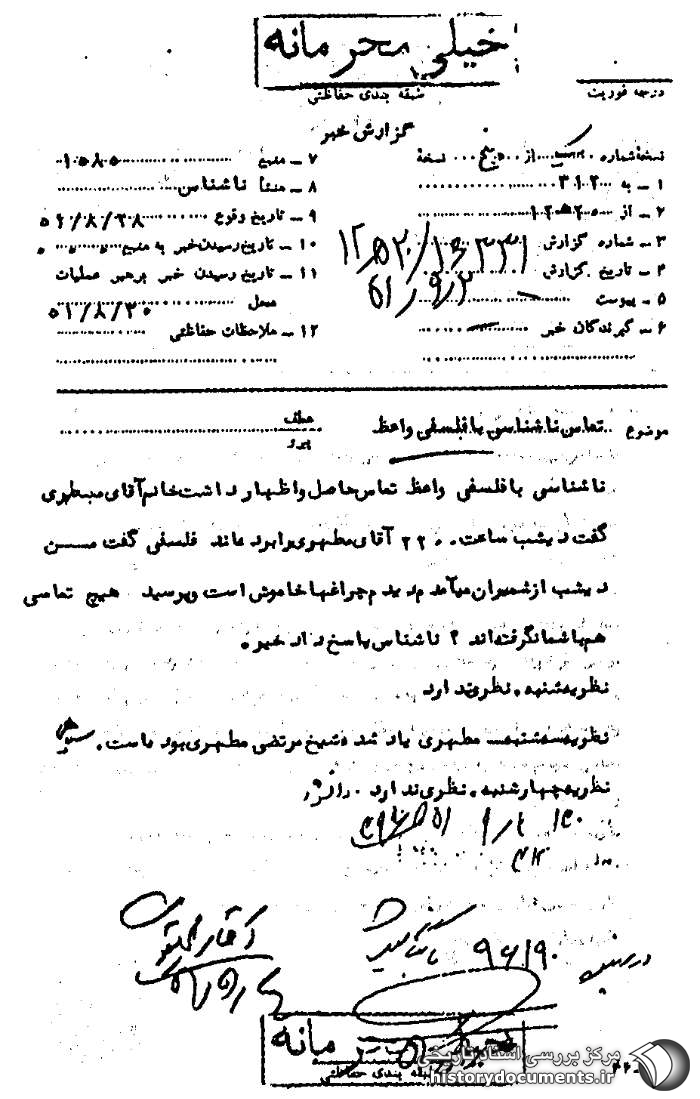 خیلی محرمانه
طبقه بندی حفاظتی
درجه فوریت
گزارش خبر
نسخهٔ شماره یک از پنج نسخهٔ
۱ ـ به ۳۱۲
۲ ـ از ۱۲۵۲۰
۳ ـ شماره گزارش
۴ ـ تاریخ گزارش ۵۱/۹/۲
۵ ـ پیوست
۶ ـ گیرندگان خبر
۷ ـ منبع ۱۰۸۵
۸ ـ منشأ ناشناس
۹ ـ تاریخ وقوع ۵۱/۸/۲۸
۱۰ ـ تاریخ رسیدن خبر به منبع
۱۱ ـ تاریخ رسیدن خبر برهبر عملیات
محل ۵۱/۸/۳۰
۱۲ ـ ملاحظات حفاظتی
موضوع تماس ناشناسی با فلسفی واعظ
عطف
پیرو
ناشناسی با فلسفی واعظ تماس حاصل و اظهار داشت خانم آقای مطهری
گفت دیشب ساعت ۲۲۰۰ آقای مطهری را برده‌اند فلسفی گفت من
دیشب از شمیران میآمدم دیدم چراغها خاموش است و پرسید هیچ تماسی
هم با شما نگرفته‌اند ؟ ناشناس پاسخ داد خیر.
نظریه شنبه. نظری ندارد
نظریه سه‌شنبه. مطهری یاد شده شیخ مرتضی مطهری بوده است.
نظریه چهارشنبه. نظری ندارد.
خیلی محرمانه
طبقه بندی حفاظتی
مرکز بررسی اسناد تاریخی
historydocuments.ir